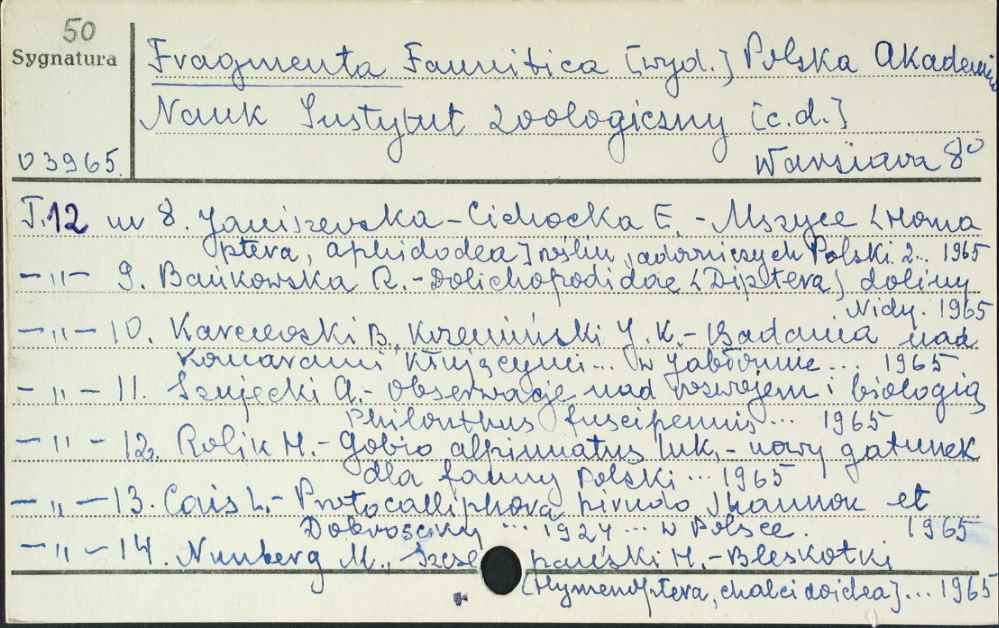 50
Sygnatura
Fragmenta Faunitica [wyd.] Polska Akademia
Nauk Instytut Zoologiczny [c.d.]
03965.
Warszawa 8°
T.12 nr 8. Janiszewska-Cichocka E. - Mszyce [Homo
ptera, aphidodea] roślin Polski 2.. 1965
-"- 9. Bańkowska R. - Dolichopodidae [Diptera] doliny
Nidy. 1965
-"- 10. Karczewski B., Krzemiński J. K. - Badania nad
komarami kłującymi... w Jabłonnie... 1965
-"- 11. Szujecki A. - Obserwacje nad rozwojem i biologią
Philonthus fuscipennis... 1965
-"- 12. Rolik H. - Gobio albipinnatus Luk. - nowy gatunek
dla fauny Polski... 1965
-"- 13. Cais L. - Protocalliphora hirudo Shannon et
Dobroscky ... 1924 ... w Polsce. 1965
-"- 14. Nunberg M., Szczepański H. - Bleskotki
[Hymenoptera, chalcidoidea]... 1965